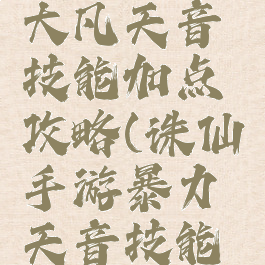 大凡天音
技能加点
攻略(诛仙
手游暴力
天音技能